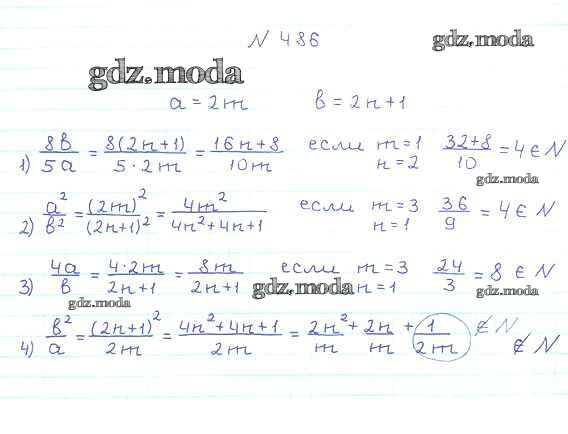 N 486
gdz.moda
gdz.moda
a = 2m в = 2n+1
1) 8в/5a = 8(2n+1)/5·2m = 16n+8/10m если m=1 n=2 32+8/10 = 4 ∈ N
gdz.moda
2) a²/в² = (2m)²/(2n+1)² = 4m²/4n²+4n+1 если m=3 n=1 36/9 = 4 ∈ N
3) 4a/в = 4·2m/2n+1 = 8m/2n+1 если m=3 n=1 24/3 = 8 ∈ N
gdz.moda
gdz.moda
gdz.moda
4) в²/a = (2n+1)²/2m = 4n²+4n+1/2m = 2n²/m + 2n/m + 1/2m ∉ N
∉ N